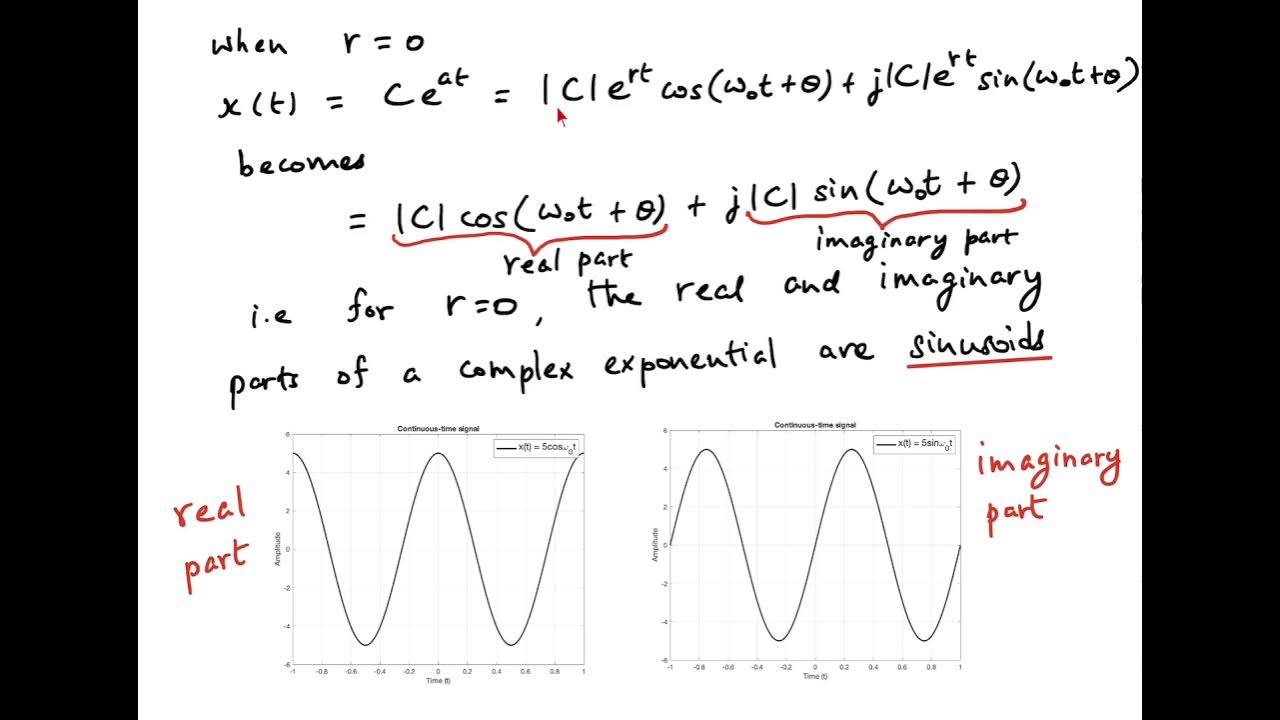 when r = 0
x(t) = Ce^{at} = |C|e^{rt} cos(ω₀t + θ) + j|C|e^{rt} sin(ω₀t + θ)
becomes
= |C| cos(ω₀t + θ) + j|C| sin(ω₀t + θ)
real part
imaginary part
i.e for r = 0, the real and imaginary
parts of a complex exponential are sinusoids
real
part
Continuous-time signal
x(t) = 5cosω₀t
Amplitude
6
4
2
0
-2
-4
-6
-1 -0.8 -0.6 -0.4 -0.2 0 0.2 0.4 0.6 0.8 1
Time (t)
Continuous-time signal
x(t) = 5sinω₀t
Amplitude
6
4
2
0
-2
-4
-6
-1 -0.8 -0.6 -0.4 -0.2 0 0.2 0.4 0.6 0.8 1
Time (t)
imaginary
part